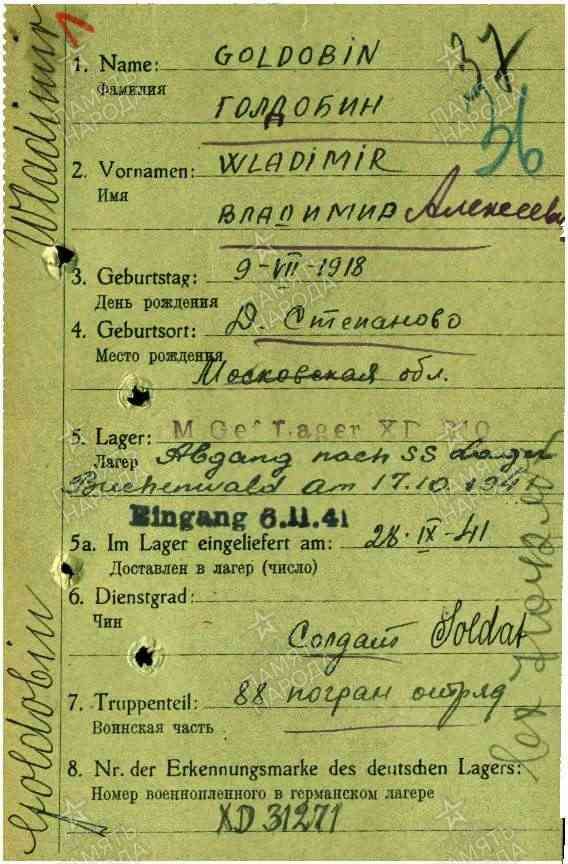 37
36
1. Name: GOLDOBIN
Фамилия
ГОЛДОБИН
2. Vornamen: WLADIMIR
Имя
ВЛАДИМИР Алексеев
3. Geburtstag: 9-VII-1918
День рождения
4. Geburtsort: Д. Степаново
Место рождения
Московская обл.
5. Lager: M Gef Lager XD 310
Лагер
Abgang nach SS Lager
Buchenwald am 17.10.1941
Eingang 6.11.41
5a. Im Lager eingeliefert am: 28·IX-41
Доставлен в лагер (число)
6. Dienstgrad:
Чин
Солдат Soldat
7. Truppenteil: 88 погран отряд
Воинская часть
8. Nr. der Erkennungsmarke des deutschen Lagers:
Номер военнопленного в германском лагере
XD 31271
Wladimir
Goldobin
ПАМЯТЬ НАРОДА